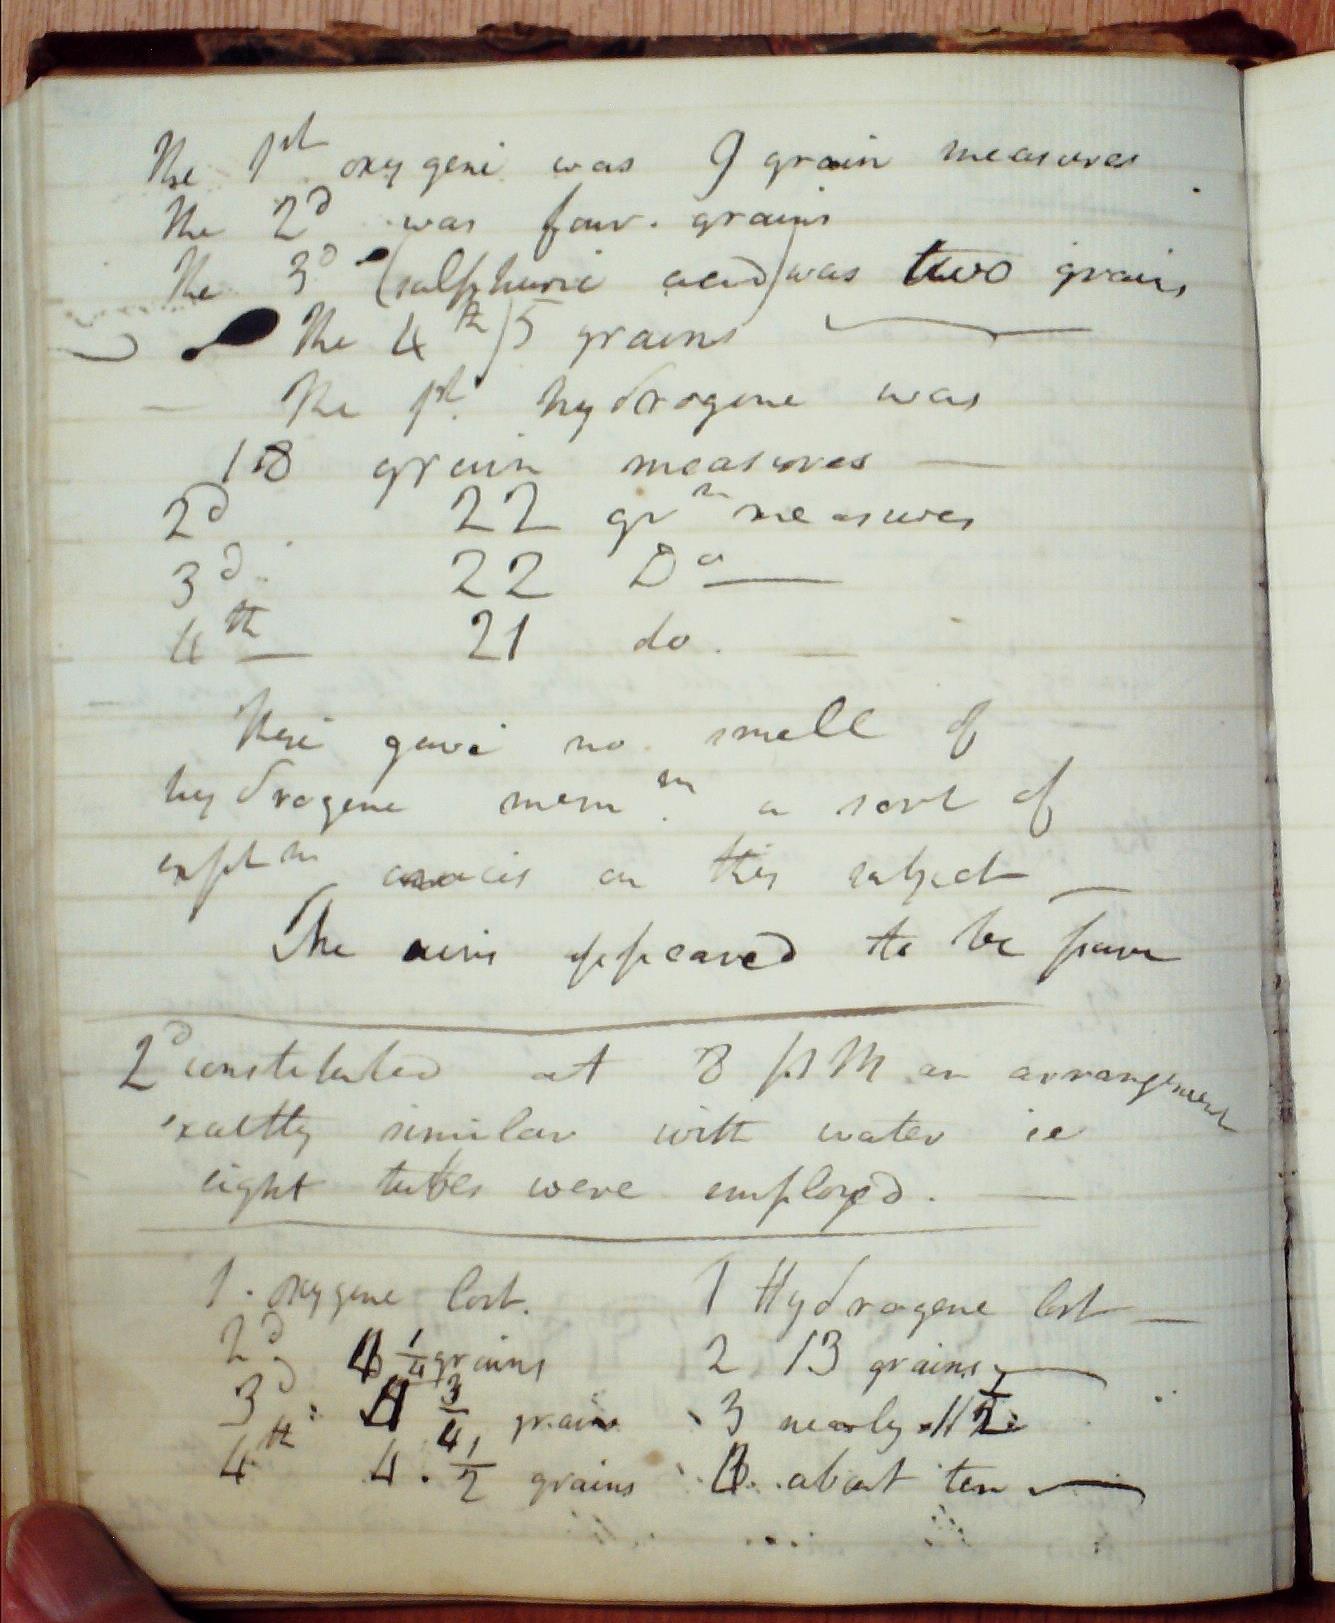 The 1st oxygene was 9 grain measures
The 2d was four. grains
The 3d (sulphuric acid) was two grains
The 4th 5 grains
The 1st. hydrogene was
18 grain measures —
2d 22 grn measures
3d 22 Do —
4th — 21 do. —
These gave no smell of
hydrogene mem.m a sort of
exptm on this subject —
The airs appeared to be pure
2d constituted at 8 PM an arrangement
exactly similar with water ie
eight tubes were employed. —
1. oxygene lost. 1 Hydrogene lost —
2d 1/4 grains 2 13 grains —
3d: 3/4 grains 3 nearly 11 1/2
4th 4. 1/2 grains about ten —